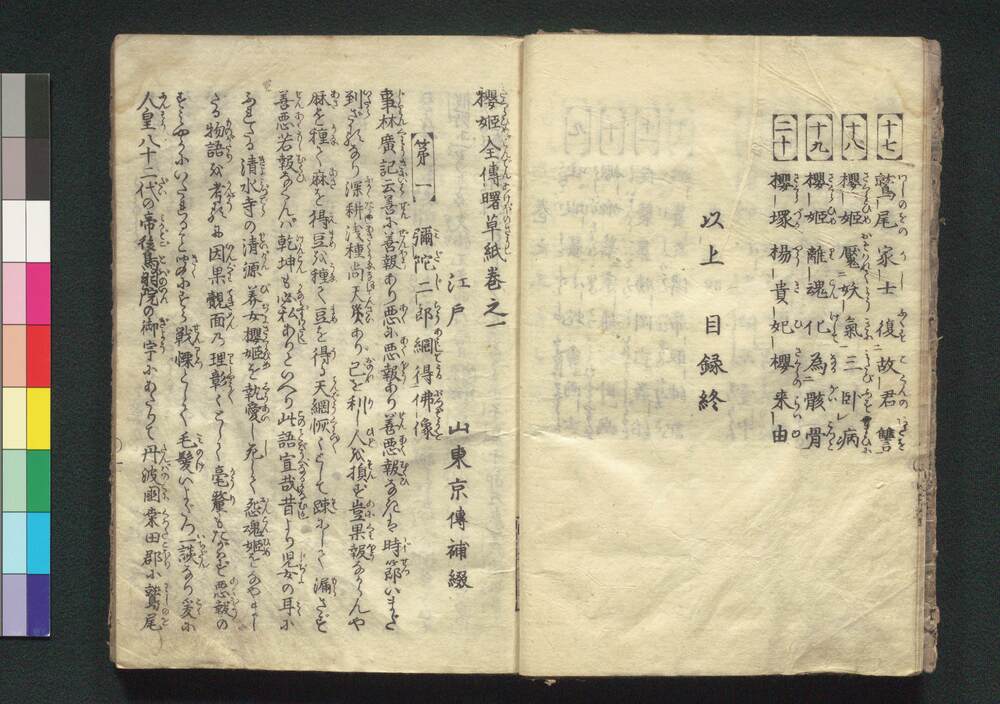 十七 鷲尾家士復故君讐
十八 櫻姫魘妖氣三卧病
十九 櫻姫離魂化為骸骨
二十 櫻塚楊貴妃櫻来由
以上目録終
櫻姫全傳曙草紙巻之一
江戸 山東京傳補綴
第一 彌陀二郎網得佛像
事林廣記云善に善報あり悪に悪報あり善悪報なきは時節いまだ
到ざるなり深耕浅種尚天災あり己を利し人を損ず豈果報なからんや
麻を種て麻を得豆を種て豆を得る天網恢々として疎にして漏さず
善悪若報なくんば乾坤も必私ありといへり此語宜哉昔より児女の耳に
ふれたる清水寺の清源美女櫻姫を執愛し死して怨魂姫をなやませし
たる物語を考るに因果覿面の理彰々として毫釐もたがはず悪報の
すみやかにいたれるを聞にするに戦慄として毛髪いよだつ一談なり爰に
人皇八十二代の帝後鳥羽院の御宇にあたりて丹波國桒田郡に鷲尾